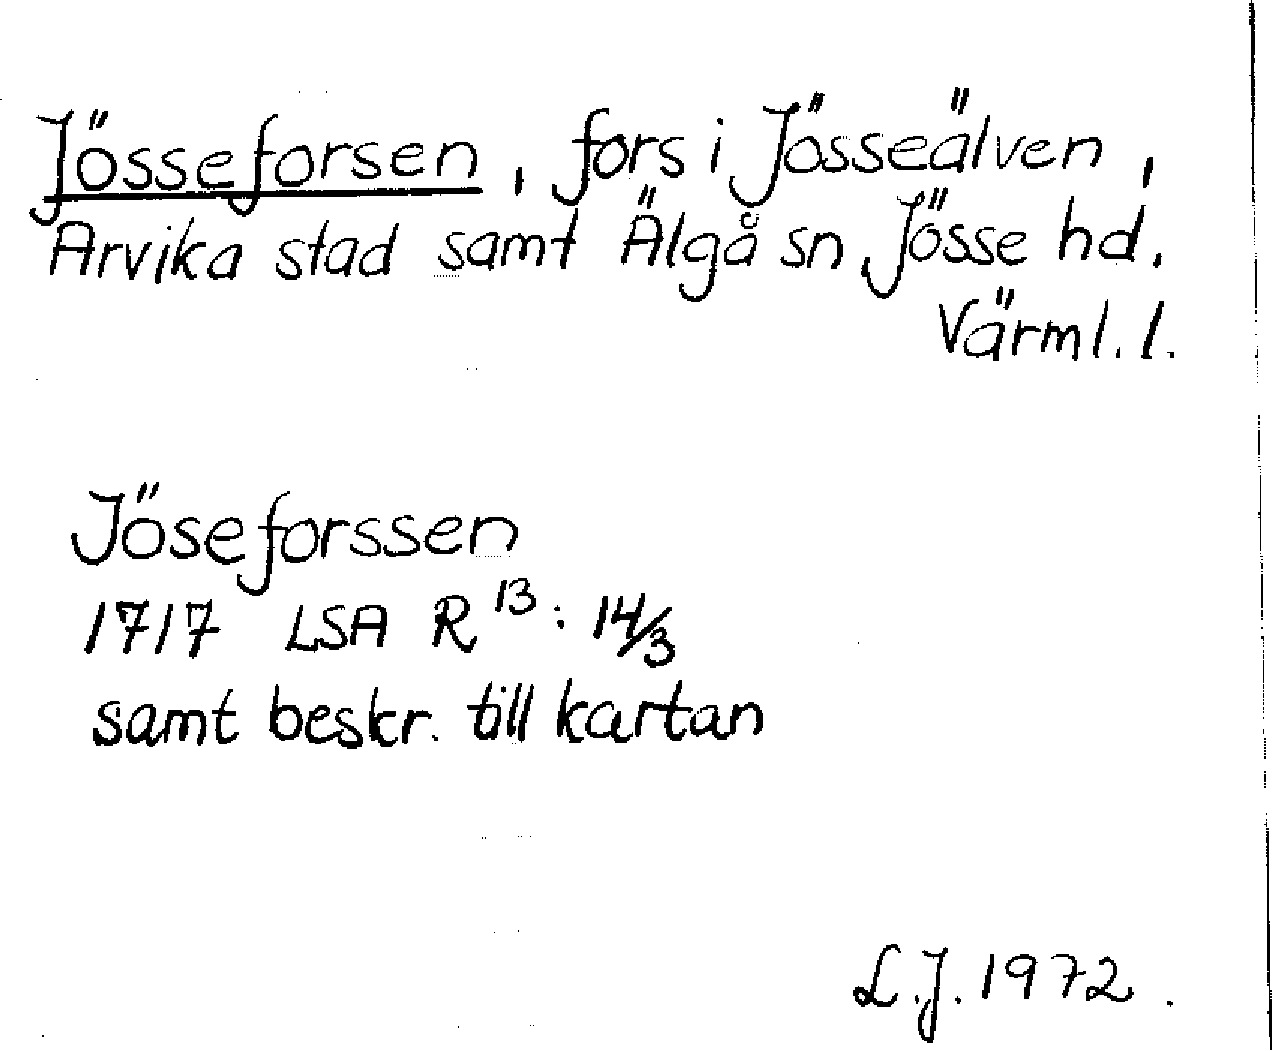 Jösseforsen, fors i Jösseälven,
Arvika stad samt Älgå sn, Jösse hd,
Värml. l.
Jöseforssen
1717 LSA R 13: 14/3
samt beskr. till kartan
L.J. 1972.